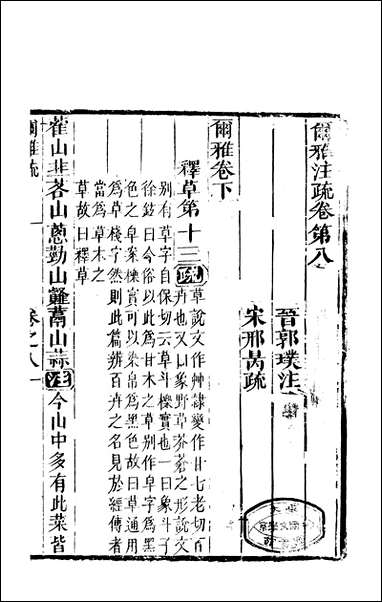 爾雅注疏卷第八
晉郭璞注
宋邢昺疏
爾雅卷下
釋草第十三
疏
草說文作艸隸變作廿七老切百
卉也又以象野草莽蒼之形說文
别有草字自保切云草斗櫟實也一曰象斗
徐鉉曰今俗以此爲甘木之草别作皁字爲黑
色之皁案櫟實可以染帛爲黑色故曰草通用
爲草棧字然則此篇辨百卉之名見於經傳者
當爲草木之
草故曰釋草
雚山韭茖山蔥勤山䪥蒚山蒜
注
今山中多有此菜皆
爾雅疏
卷之八
一